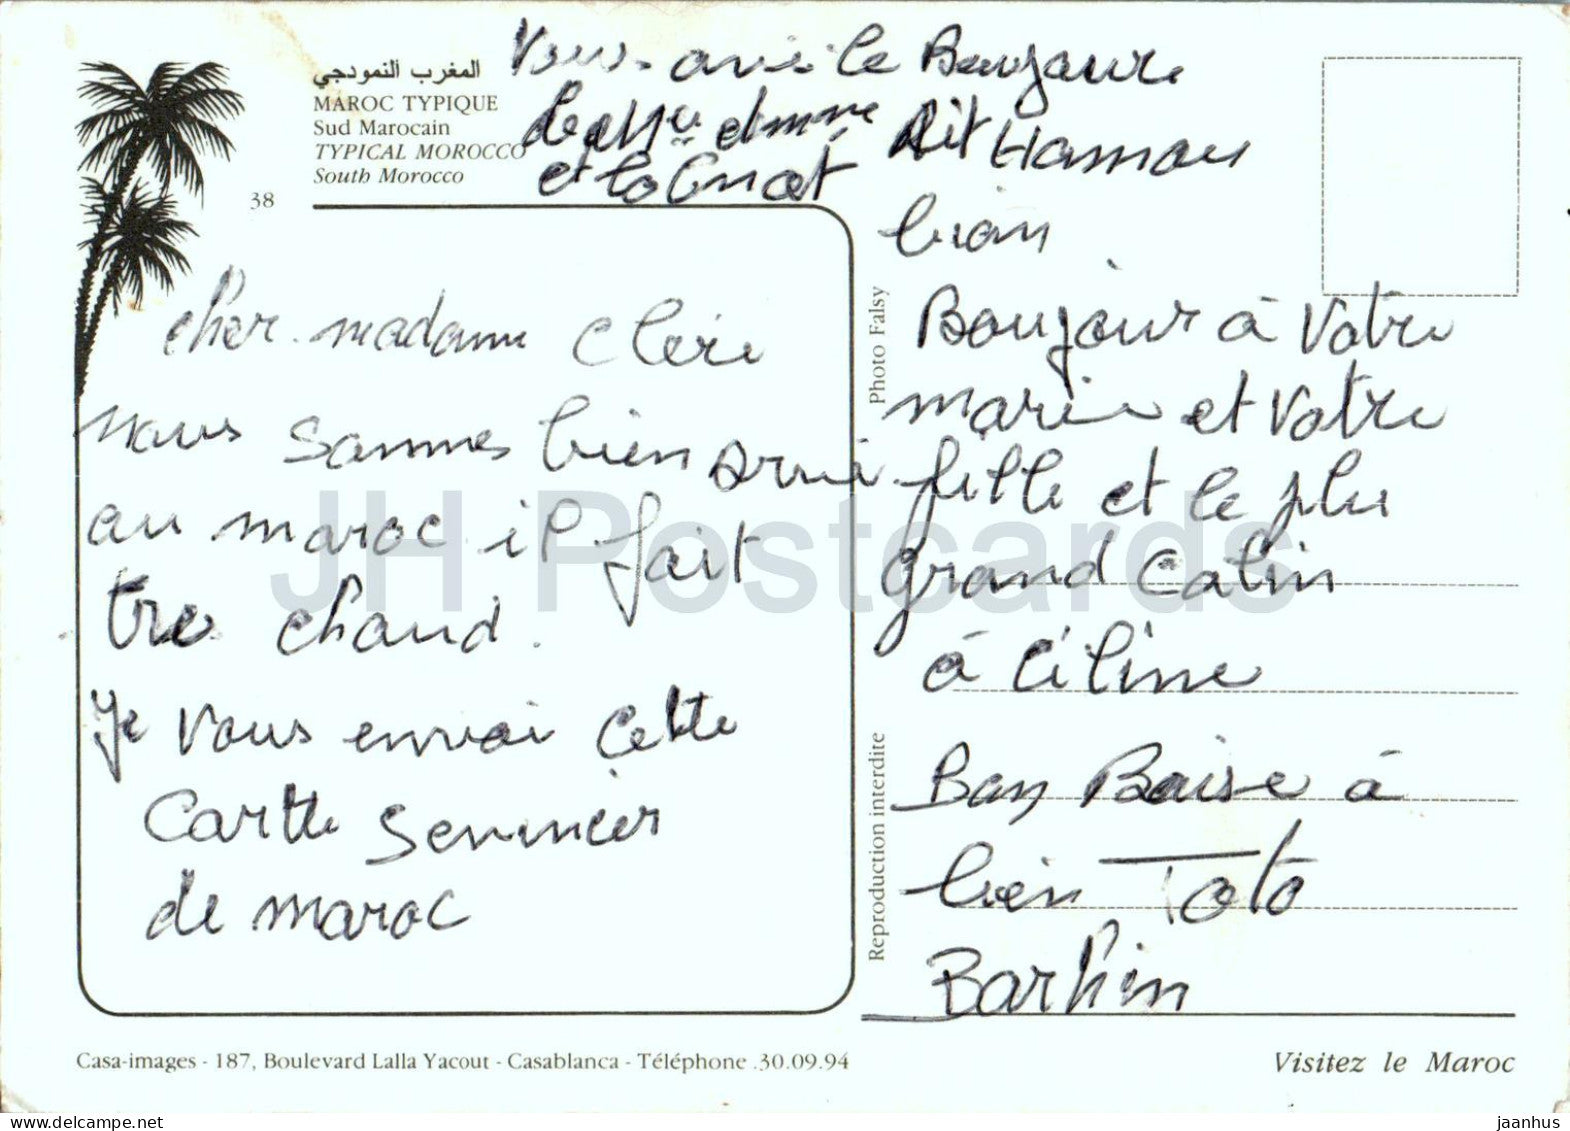 المغرب النموذجي
MAROC TYPIQUE
Sud Marocain
TYPICAL MOROCCO
South Morocco
38
cher madame Clère
nous sommes bien arrivé
au maroc il fait
tre chaud.
Je vous envoi cette
carte
de maroc
Vous avé le Bonjoure
de et mme Ait Hamou
et
bien
Bonjour à Votre
marie et Votre
fille et le plu
grand calin
à Céline
Bon Baise à
bien Toto
Barkin
Photo Falsy
Reproduction interdite
JH Postcards
Casa-images - 187, Boulevard Lalla Yacout - Casablanca - Téléphone .30.09.94
Visitez le Maroc
www.delcampe.net
jaanhus